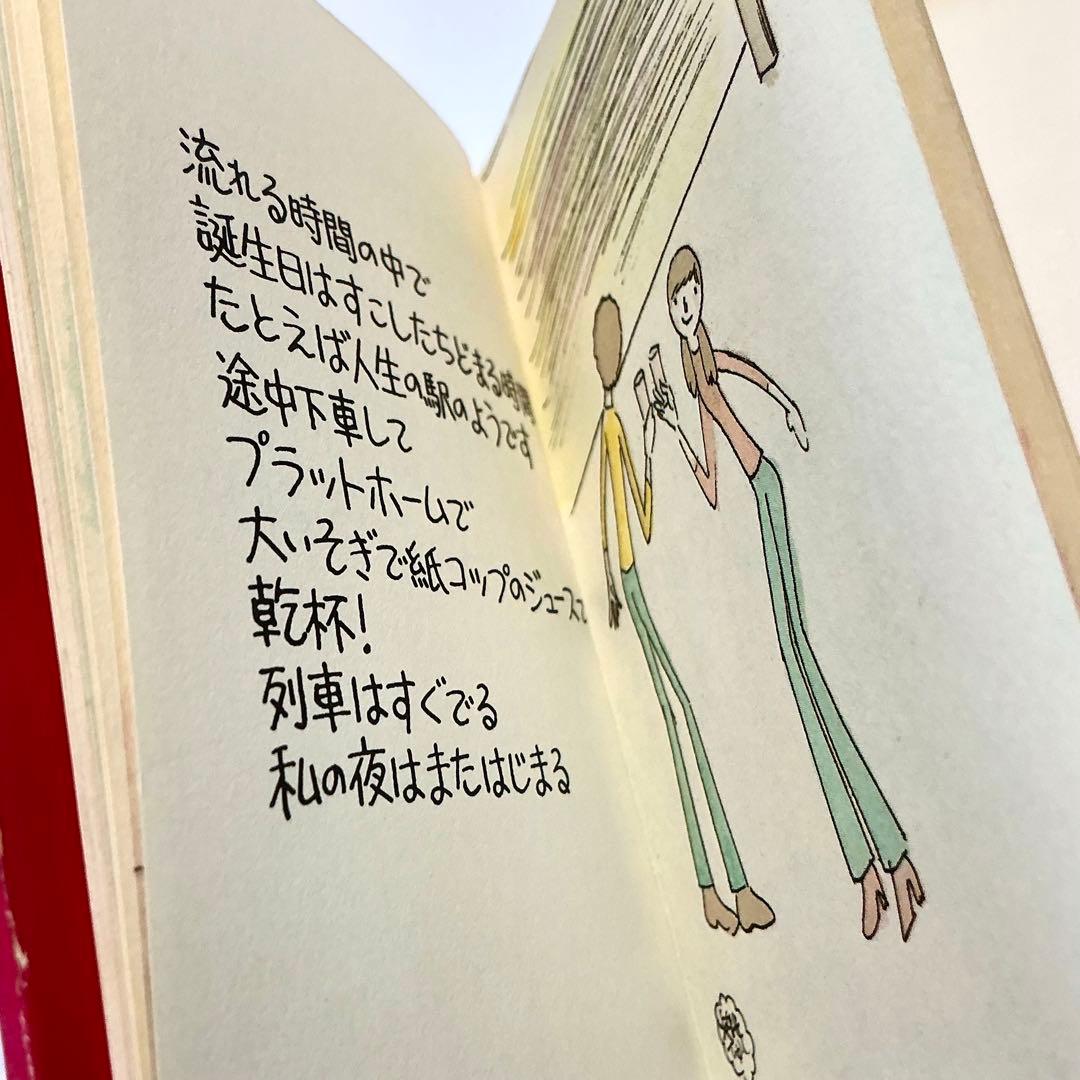 流れる時間の中で
誕生日はすこしたちどまる時間
たとえば人生の駅のようです
途中下車して
プラットホームで
大いそぎで紙コップのジュースで
乾杯!
列車はすぐでる
私の夜はまたはじまる